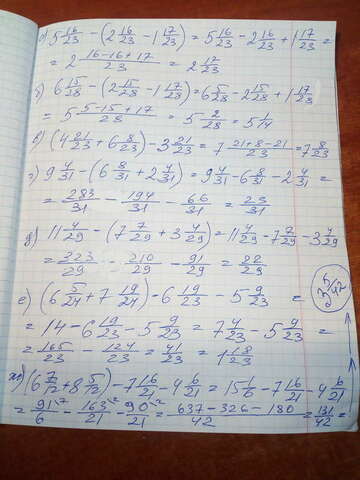 а) 5 16/23 - (2 16/23 - 1 17/23) = 5 16/23 - 2 16/23 + 1 17/23 =
= 2 16-16+17/23 = 2 17/23
б) 6 15/28 - (2 15/28 - 1 17/28) = 6 5/28 - 2 15/28 + 1 17/28
= 5 5-15+17/28 = 5 2/28 = 5 1/14
в) (4 21/23 + 6 8/23) - 3 21/23 = 7 21+8-21/23 = 7 8/23
г) 9 4/31 - (6 8/31 + 2 4/31) = 9 4/31 - 6 8/31 - 2 4/31 =
= 283/31 - 194/31 - 66/31 = 23/31
д) 11 4/29 - (7 7/29 + 3 4/29) = 11 4/29 - 7 7/29 - 3 4/29
= 223/29 - 210/29 - 91/29 = 22/29
е) (6 5/24 + 7 19/24) - 6 19/23 - 5 9/23 =
= 14 - 6 19/23 - 5 9/23 = 7 4/23 - 5 9/23 =
= 165/23 - 124/23 = 41/23 = 1 18/23
ж) (6 7/12 + 8 5/12) - 7 16/21 - 4 6/21 = 15 1/6 - 7 16/21 - 4 6/21
= 91/6 - 163/21 - 90/21 = 637-326-180/42 = 131/42 =
3 5/42